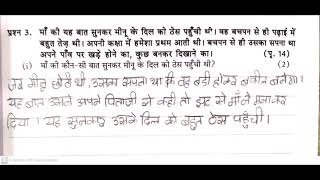 प्रश्न 3. माँ की यह बात सुनकर मीनू के दिल को ठेस पहुँची थी। वह बचपन से ही पढ़ाई में
बहुत तेज़ थी। अपनी कक्षा में हमेशा प्रथम आती थी। बचपन से ही उसका सपना था
अपने पाँव पर खड़े होने का, कुछ बनकर दिखाने का। (पृ. 14)
(i) माँ की कौन-सी बात सुनकर मीनू के दिल को ठेस पहुँची थी? (2)
जब मीनू छोटी थी, उसका सपना था कि वह बड़ी होकर वकील बनेगी।
यह बात उसने अपने पिताजी से कही तो झट से माँ ने मना कर
दिया। यह सुनकर उसके दिल को बहुत ठेस पहुँची।